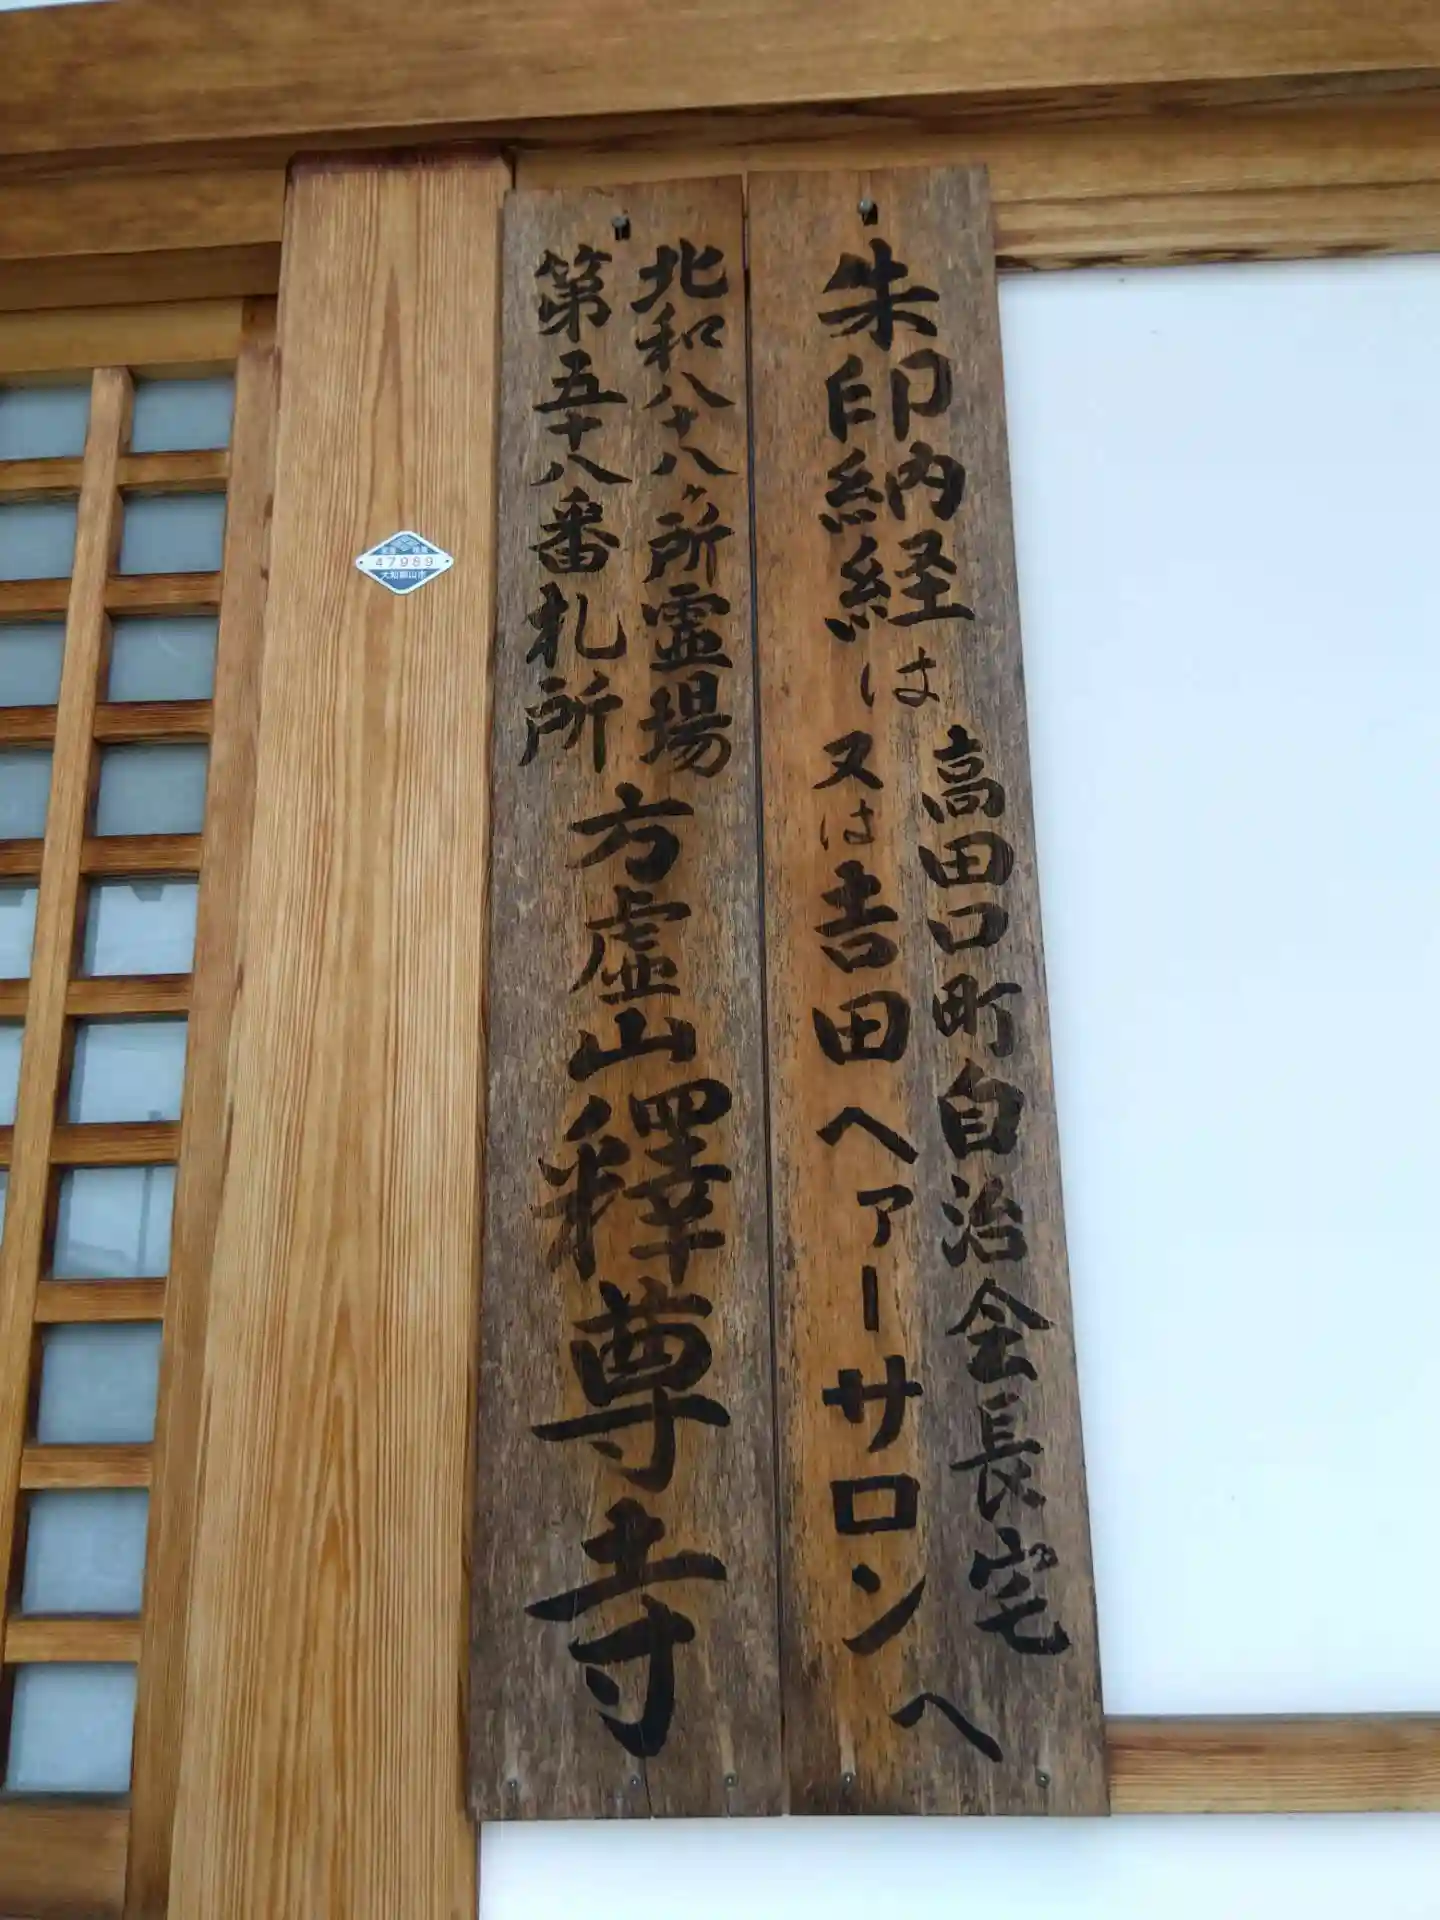 朱印納経は
高田口町自治会長宅
又は吉田ヘァーサロン
へ
北和八十八ヶ所霊場
第五十八番札所
方虚山釋尊寺
47989
大和郡山市